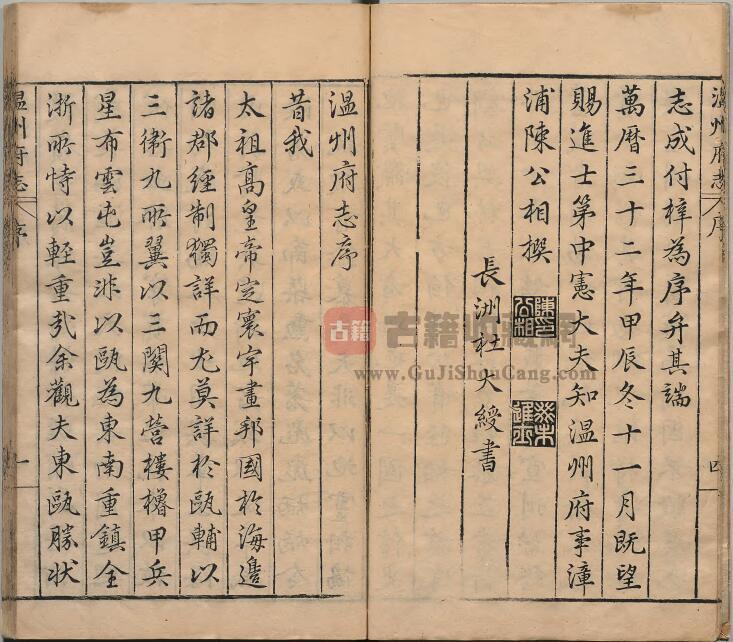 温州府志 序
四
志成付梓為序弁其端
萬曆三十二年甲辰冬十一月既望
賜進士第中憲大夫知温州府事漳
浦陳公相撰
陳公相印
癸未進士
長洲杜大綬書
温州府志序
昔我
太祖高皇帝定寰宇畫邦國於海邊
諸郡經制獨詳而尤莫詳於甌輔以
三衛九所翼以三關九營樓櫓甲兵
星布雲屯豈非以甌為東南重鎮全
浙所恃以輕重哉余觀夫東甌勝狀
温州府志 序
一
古籍 古籍收藏網
www.GuJiShouCang.com